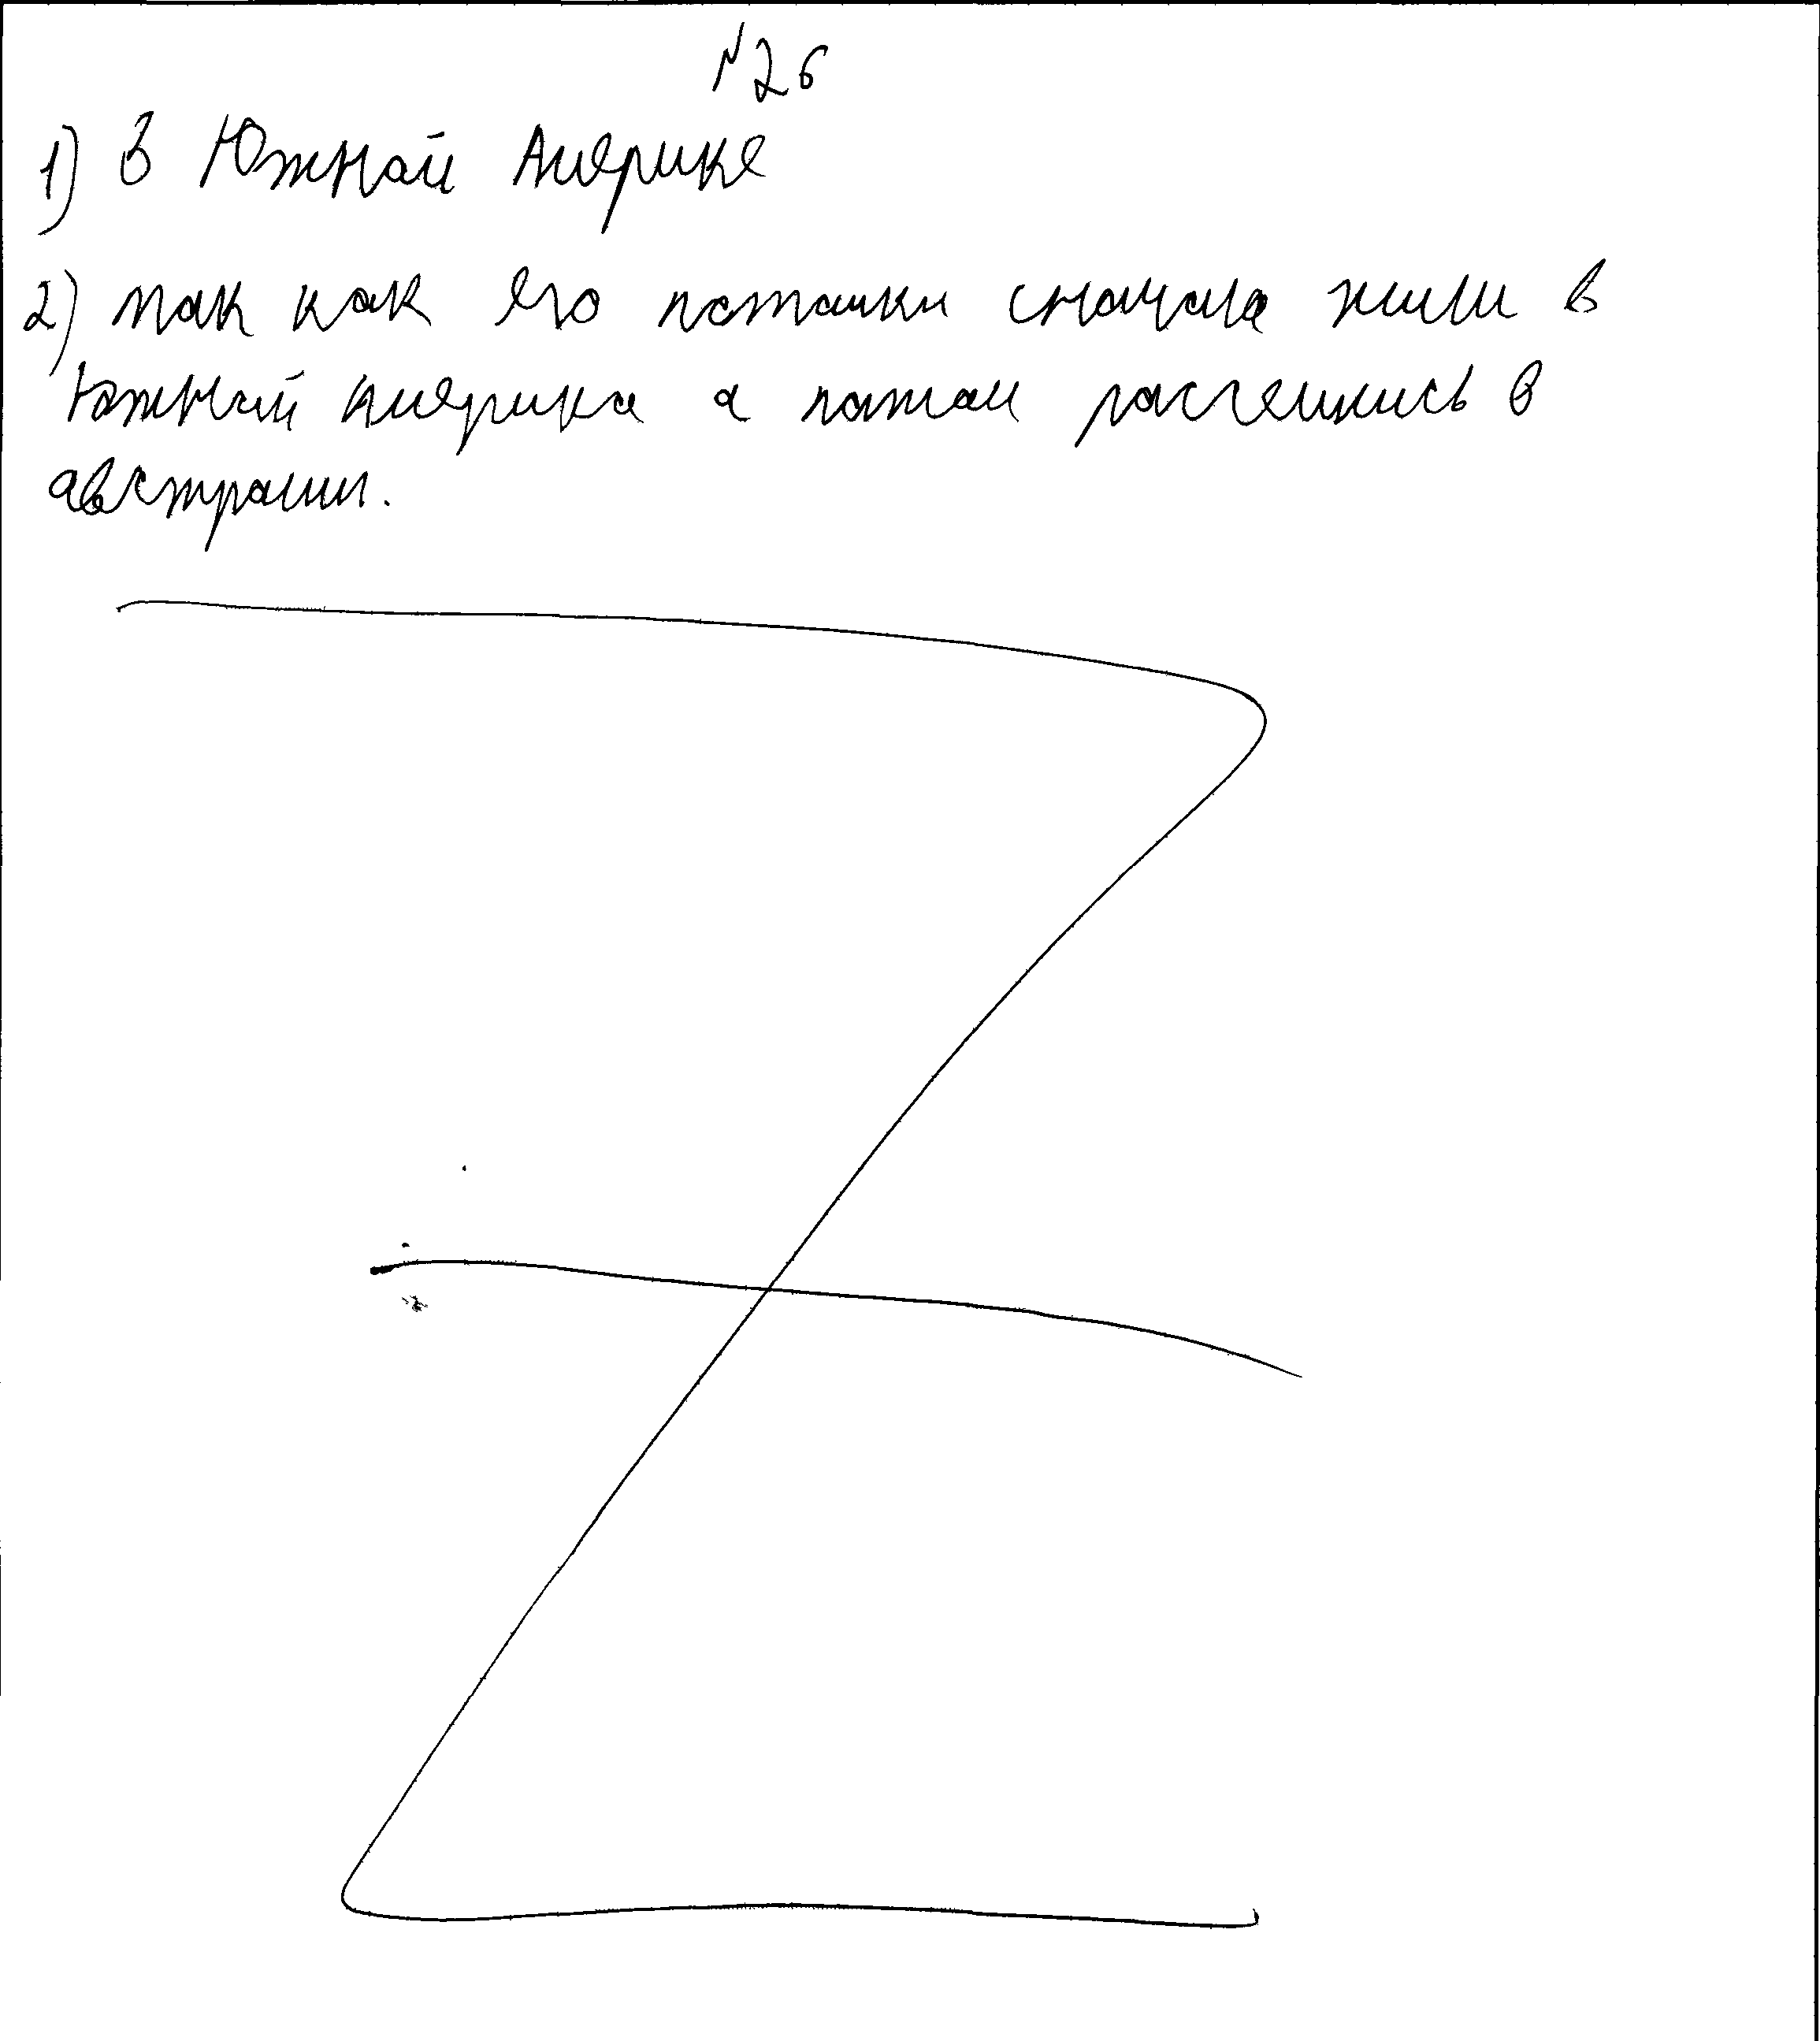 №26
1) в Южнай Америке
2) так как его потомки сначала жили в
Южный Америка а патом расселились в
австралии.